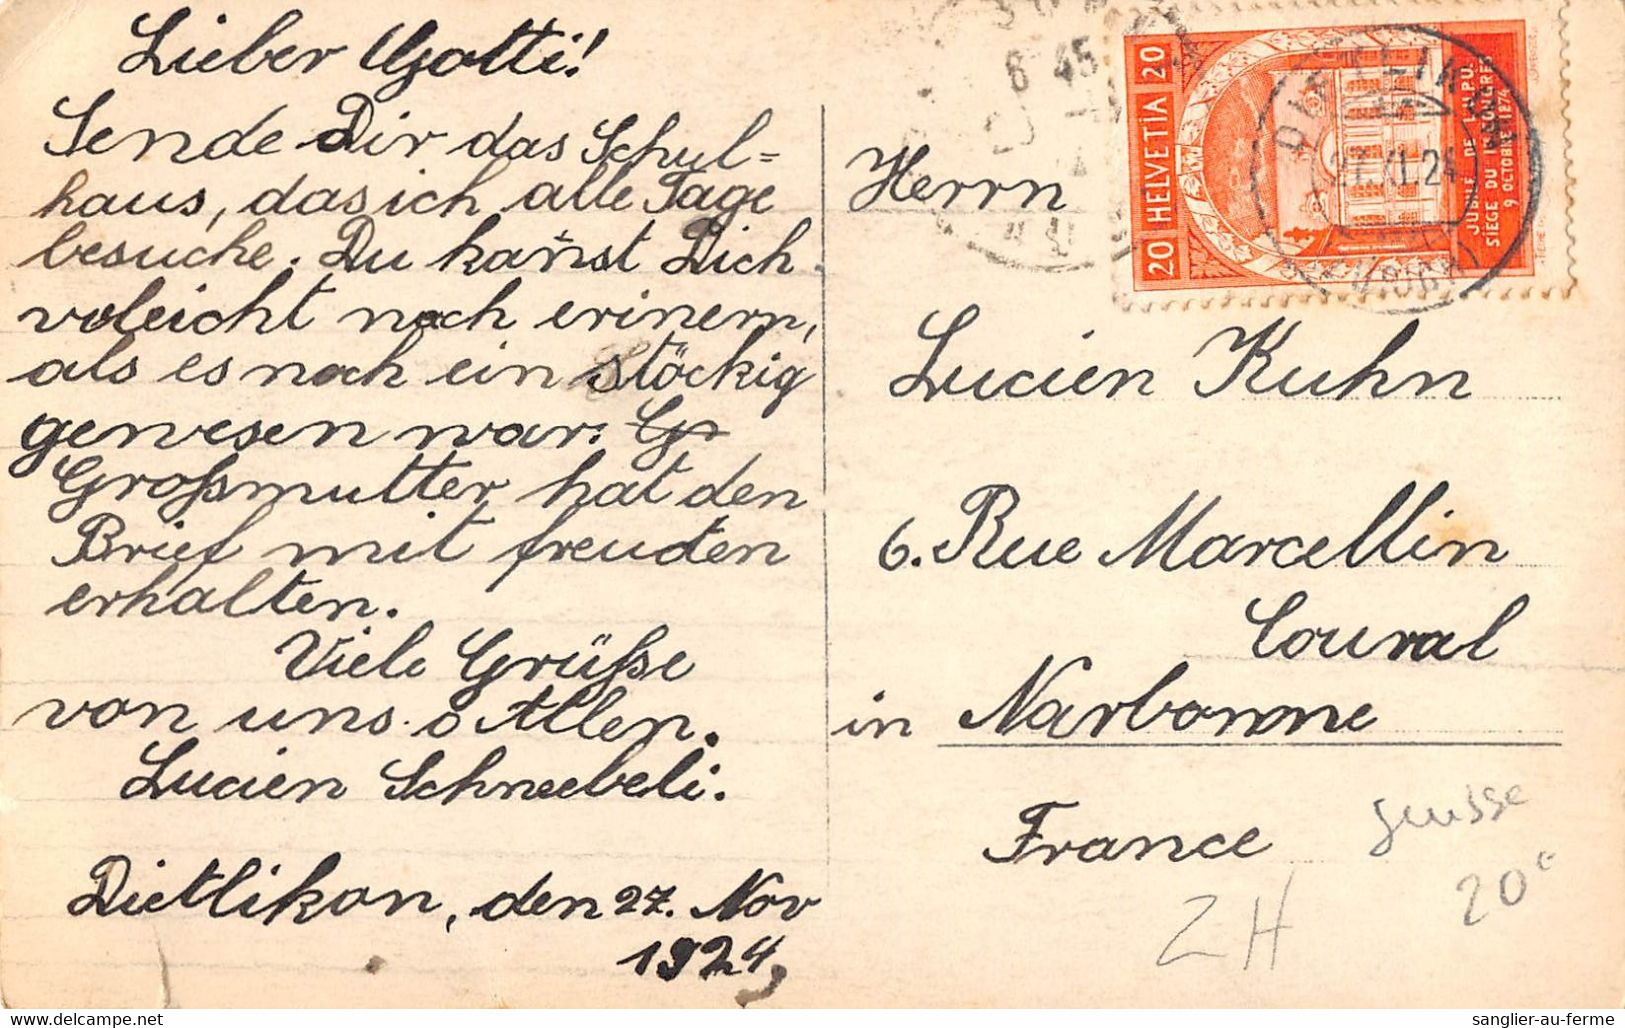 Lieber Götti!
Sende Dir das Schul=
haus, das ich alle Tage
besuche. Du kanst Dich
voleicht noch erinern,
als es noch ein stöckig
gewesen war. Gr
Großmutter hat den
Brief mit freuden
erhalten.
Viele Grüße
von uns Allen.
Lucien Schneebeli.
Dietlikon, den 27. Nov
1924
Herrn
Lucien Kuhn
6. Rue Marcellin
Coural
in Narbonne
France
suisse
20c
ZH
20 HELVETIA 20
JUBILÉ DE L'U.P.U.
SIÈGE DU 1er CONGRÈS
9 OCTOBRE 1874
DIETLIKON
27.XI.24
(ZÜRICH)
6 45
sanglier-au-ferme
www.delcampe.net